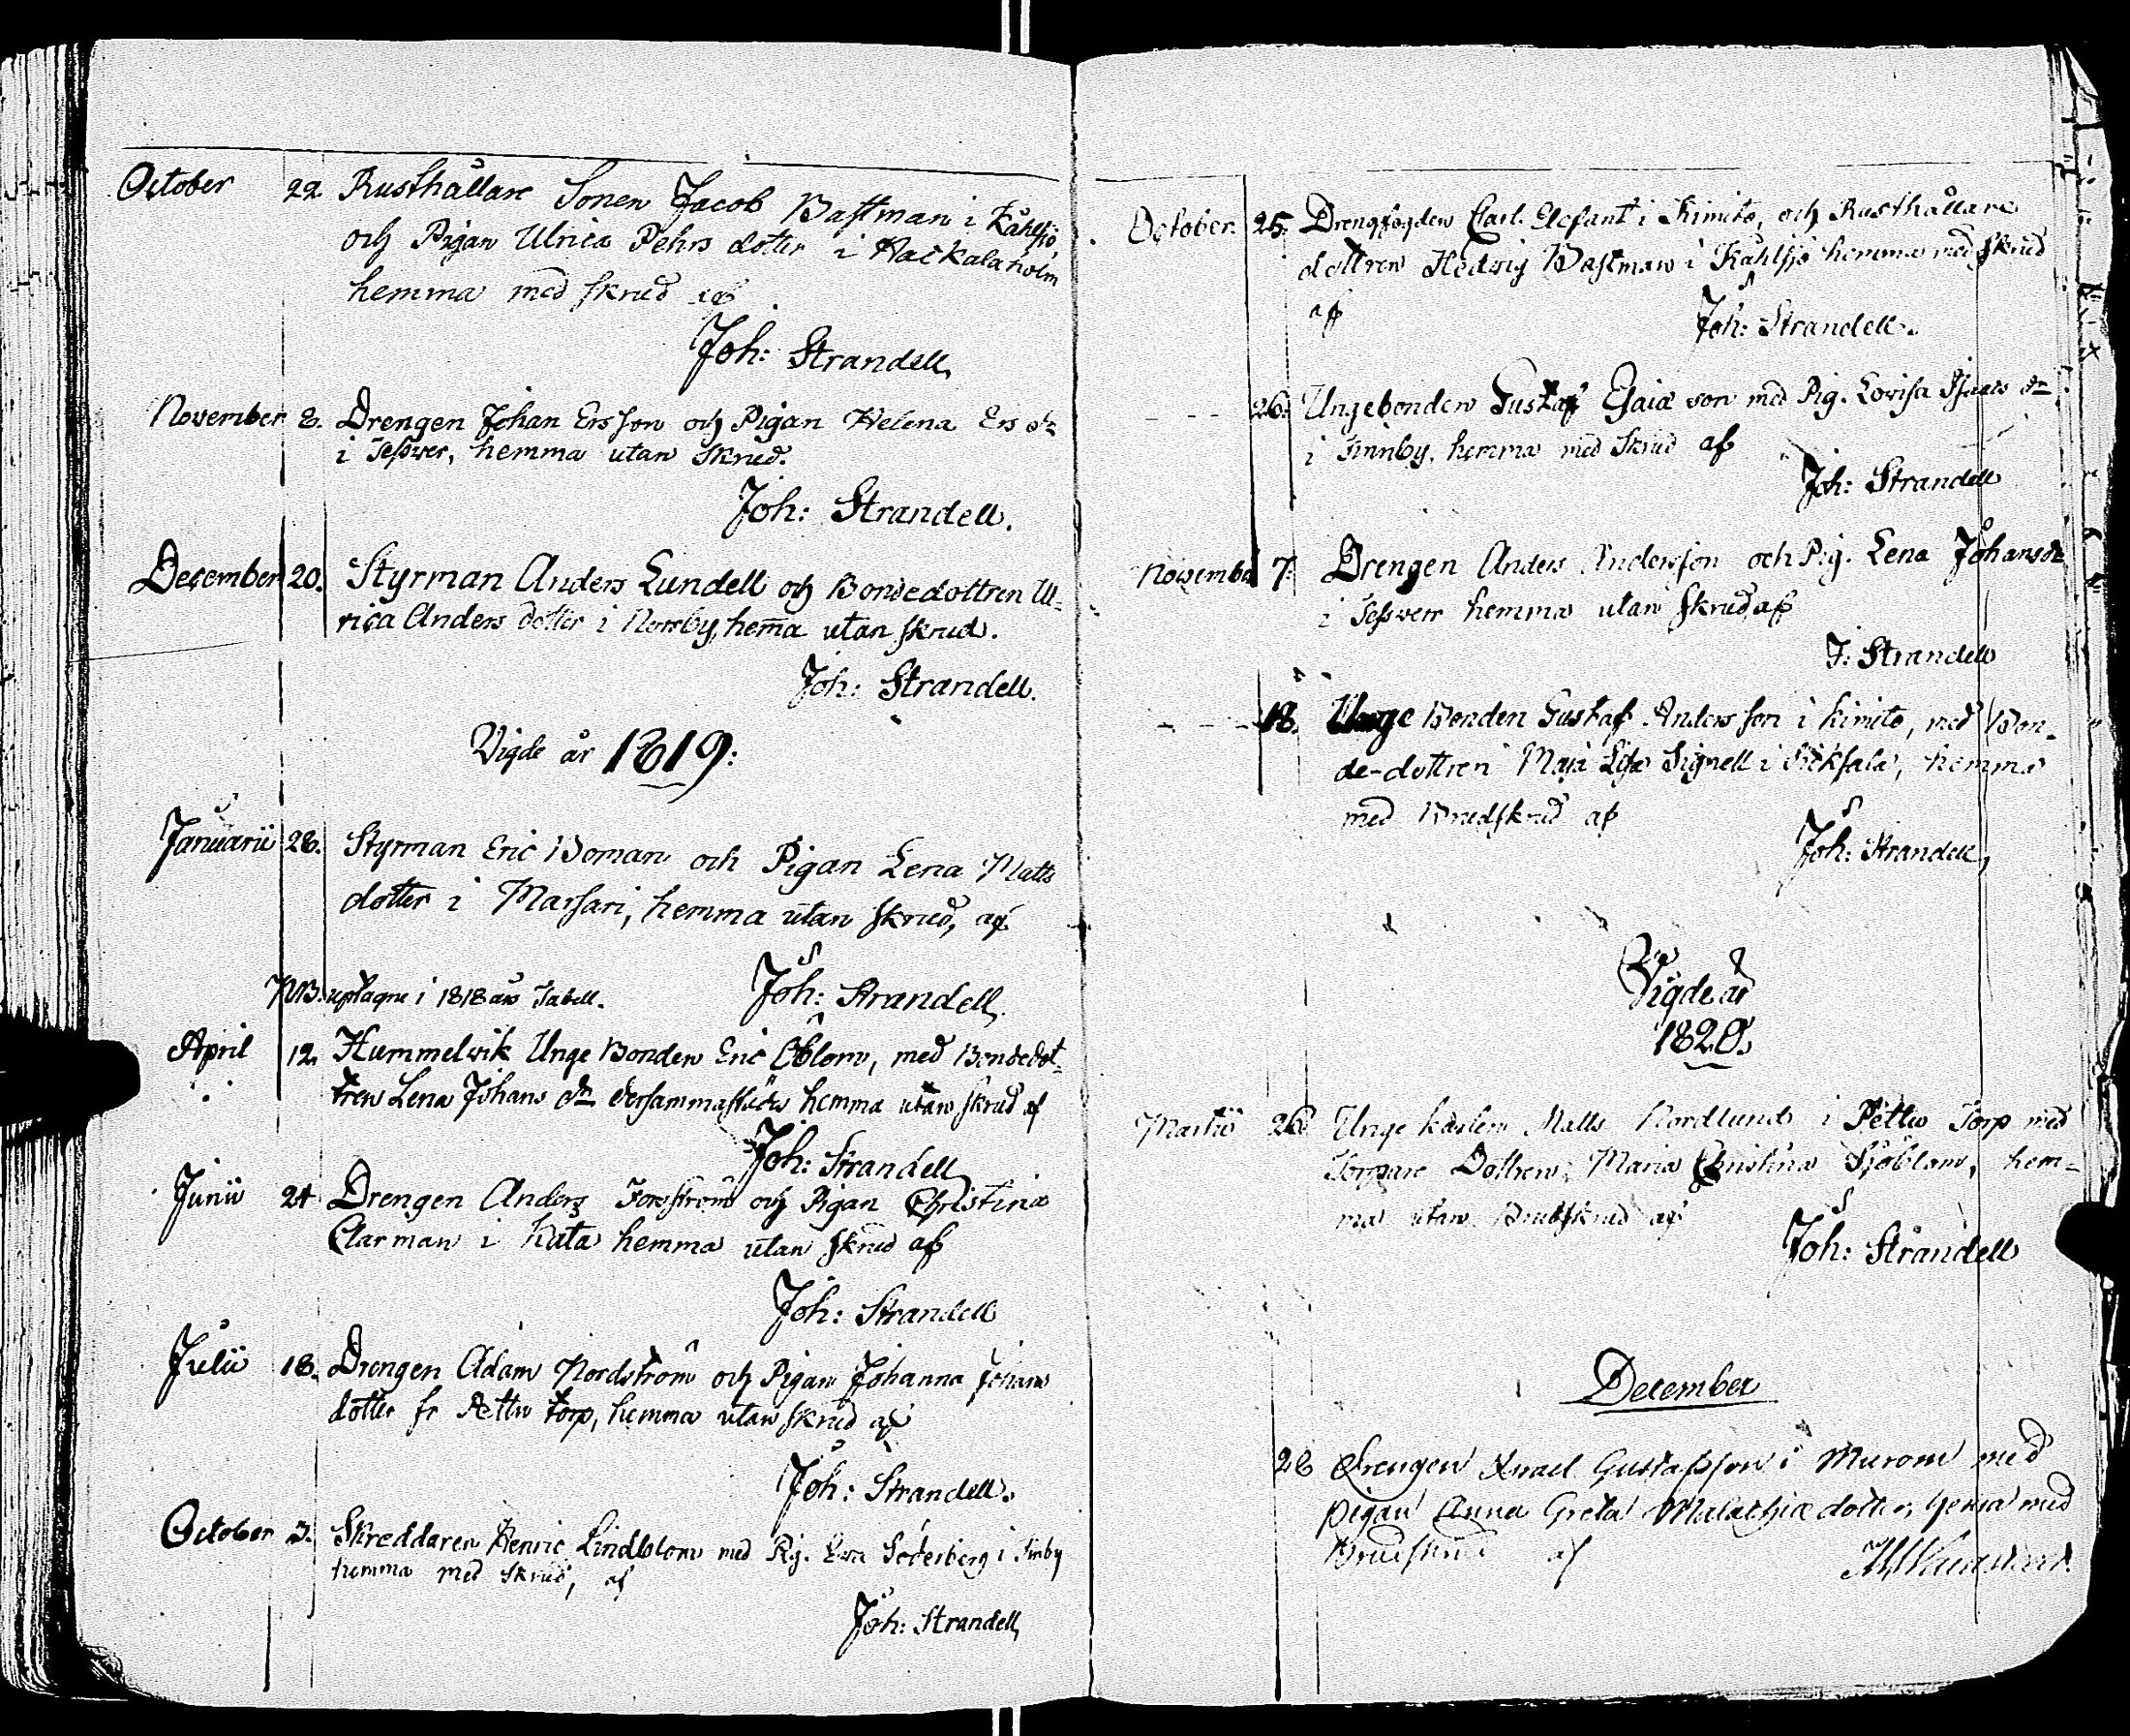 October 22 Rusthållare Sonen Jacob Bastman i Kåhlsjö
och Pigan Ulrica Pehrs dotter i Hackalaholm
hemma med skrud af
Joh: Strandell
November 8. Drengen Johan Ersson och Pigan Helena Ers dr
i Tessver, hemma utan skrud.
Joh: Strandell.
December 20. Styrman Anders Lundell och Bondedottren Ul-
rica Anders dotter i Norrby, hem̅a utan skrud.
Joh: Strandell.
Vigde år 1819:
Januarii 28. Styrman Eric Boman och Pigan Lena Matts
dotter i Marsari, hemma utan skrud, af
NB. uptagne i 1818 års Tabell. Joh: Strandell.
April 12. Hummelvik Unge Bonden Eric Öblom, med Bondedot-
tren Lena Johans dr dersammastädes hemma utan skrud af
Joh: Strandell
Junii 24. Drengen Anders Forsström och Pigan Christina
Clarman i hemma utan skrud af
Joh: Strandell
Julii 18. Drengen Adam Nordström och Pigan Johanna Johans
dotter fr Pettu torp, hemma utan skrud af
Joh: Strandell.
October 3. Skreddaren Henric Lindblom med Pig. Eva Söderberg i Finby
hemma med skrud, af
Joh: Strandell
October. 25. Drengfogden Carl Elefant i Kimito, och Rusthållare
dottren Hedvig Bastman i Kåhlsjö hemma med skrud
af Joh: Strandell.
- - - 26. Ungebonden Gustaf Esaiæ son med Pig. Lovisa Isaacs dr
i Finnby, hemma med skrud af
Joh: Strandell
November 7. Drengen Anders Andersson och Pig. Lena Johans dr
i Tessverr hemma utan skrud af
J: Strandell
- - - 18. Unge Bonden Gustaf Andersson i Kimito, med Bon-
de-dottren Maja Lisa Signell i hemma
med Brudskrud af
Joh: Strandell
Vigde år
1820.
Martii 26. Unge karlen Matts Nordlund i Pettu Torp med
Torpare Dottren Maria Christina Sjöblom, hem-
ma utan Brudskrud af
Joh: Strandell
December
28 Drengen Israel Gustafsson i Murom med
pigan Anna Greta Malachiæ dotter, hema med
Brudskrud af